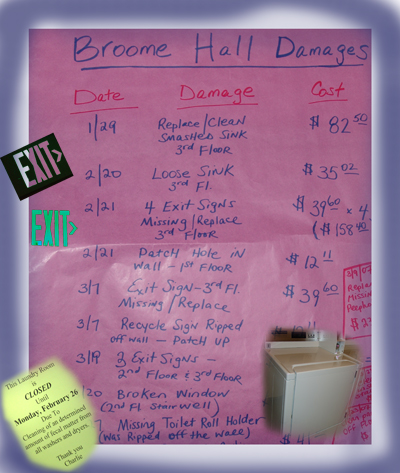 Broome Hall Damages
Date Damage Cost
1/29 Replace/Clean $ 82 50
Smashed Sink
3rd Floor
2/20 Loose Sink $ 35 02
3rd Fl.
2/21 4 Exit Signs $ 39 60 x 4
Missing/Replace ($ 158 40
3rd Floor
2/21 Patch Hole in $ 12 11
Wall - 1st Floor
3/7 Exit Sign - 3rd Fl. $ 39 60
Missing/Replace
3/7 Recycle Sign Ripped
off wall - Patch up
3/19 3 Exit Signs -
2nd Floor & 3rd Floor
/20 Broken Window
(2nd Fl Stairwell)
Missing Toilet Roll Holder
(was Ripped off the wall)
EXIT
EXIT
This Laundry Room
is
CLOSED
Until
Monday, February 26
Due To
Cleaning of an determined
amount of fecal matter from
all washers and dryers.
Thank you
Charlie